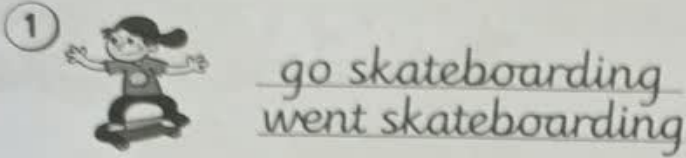 1
go skateboarding
went skateboarding